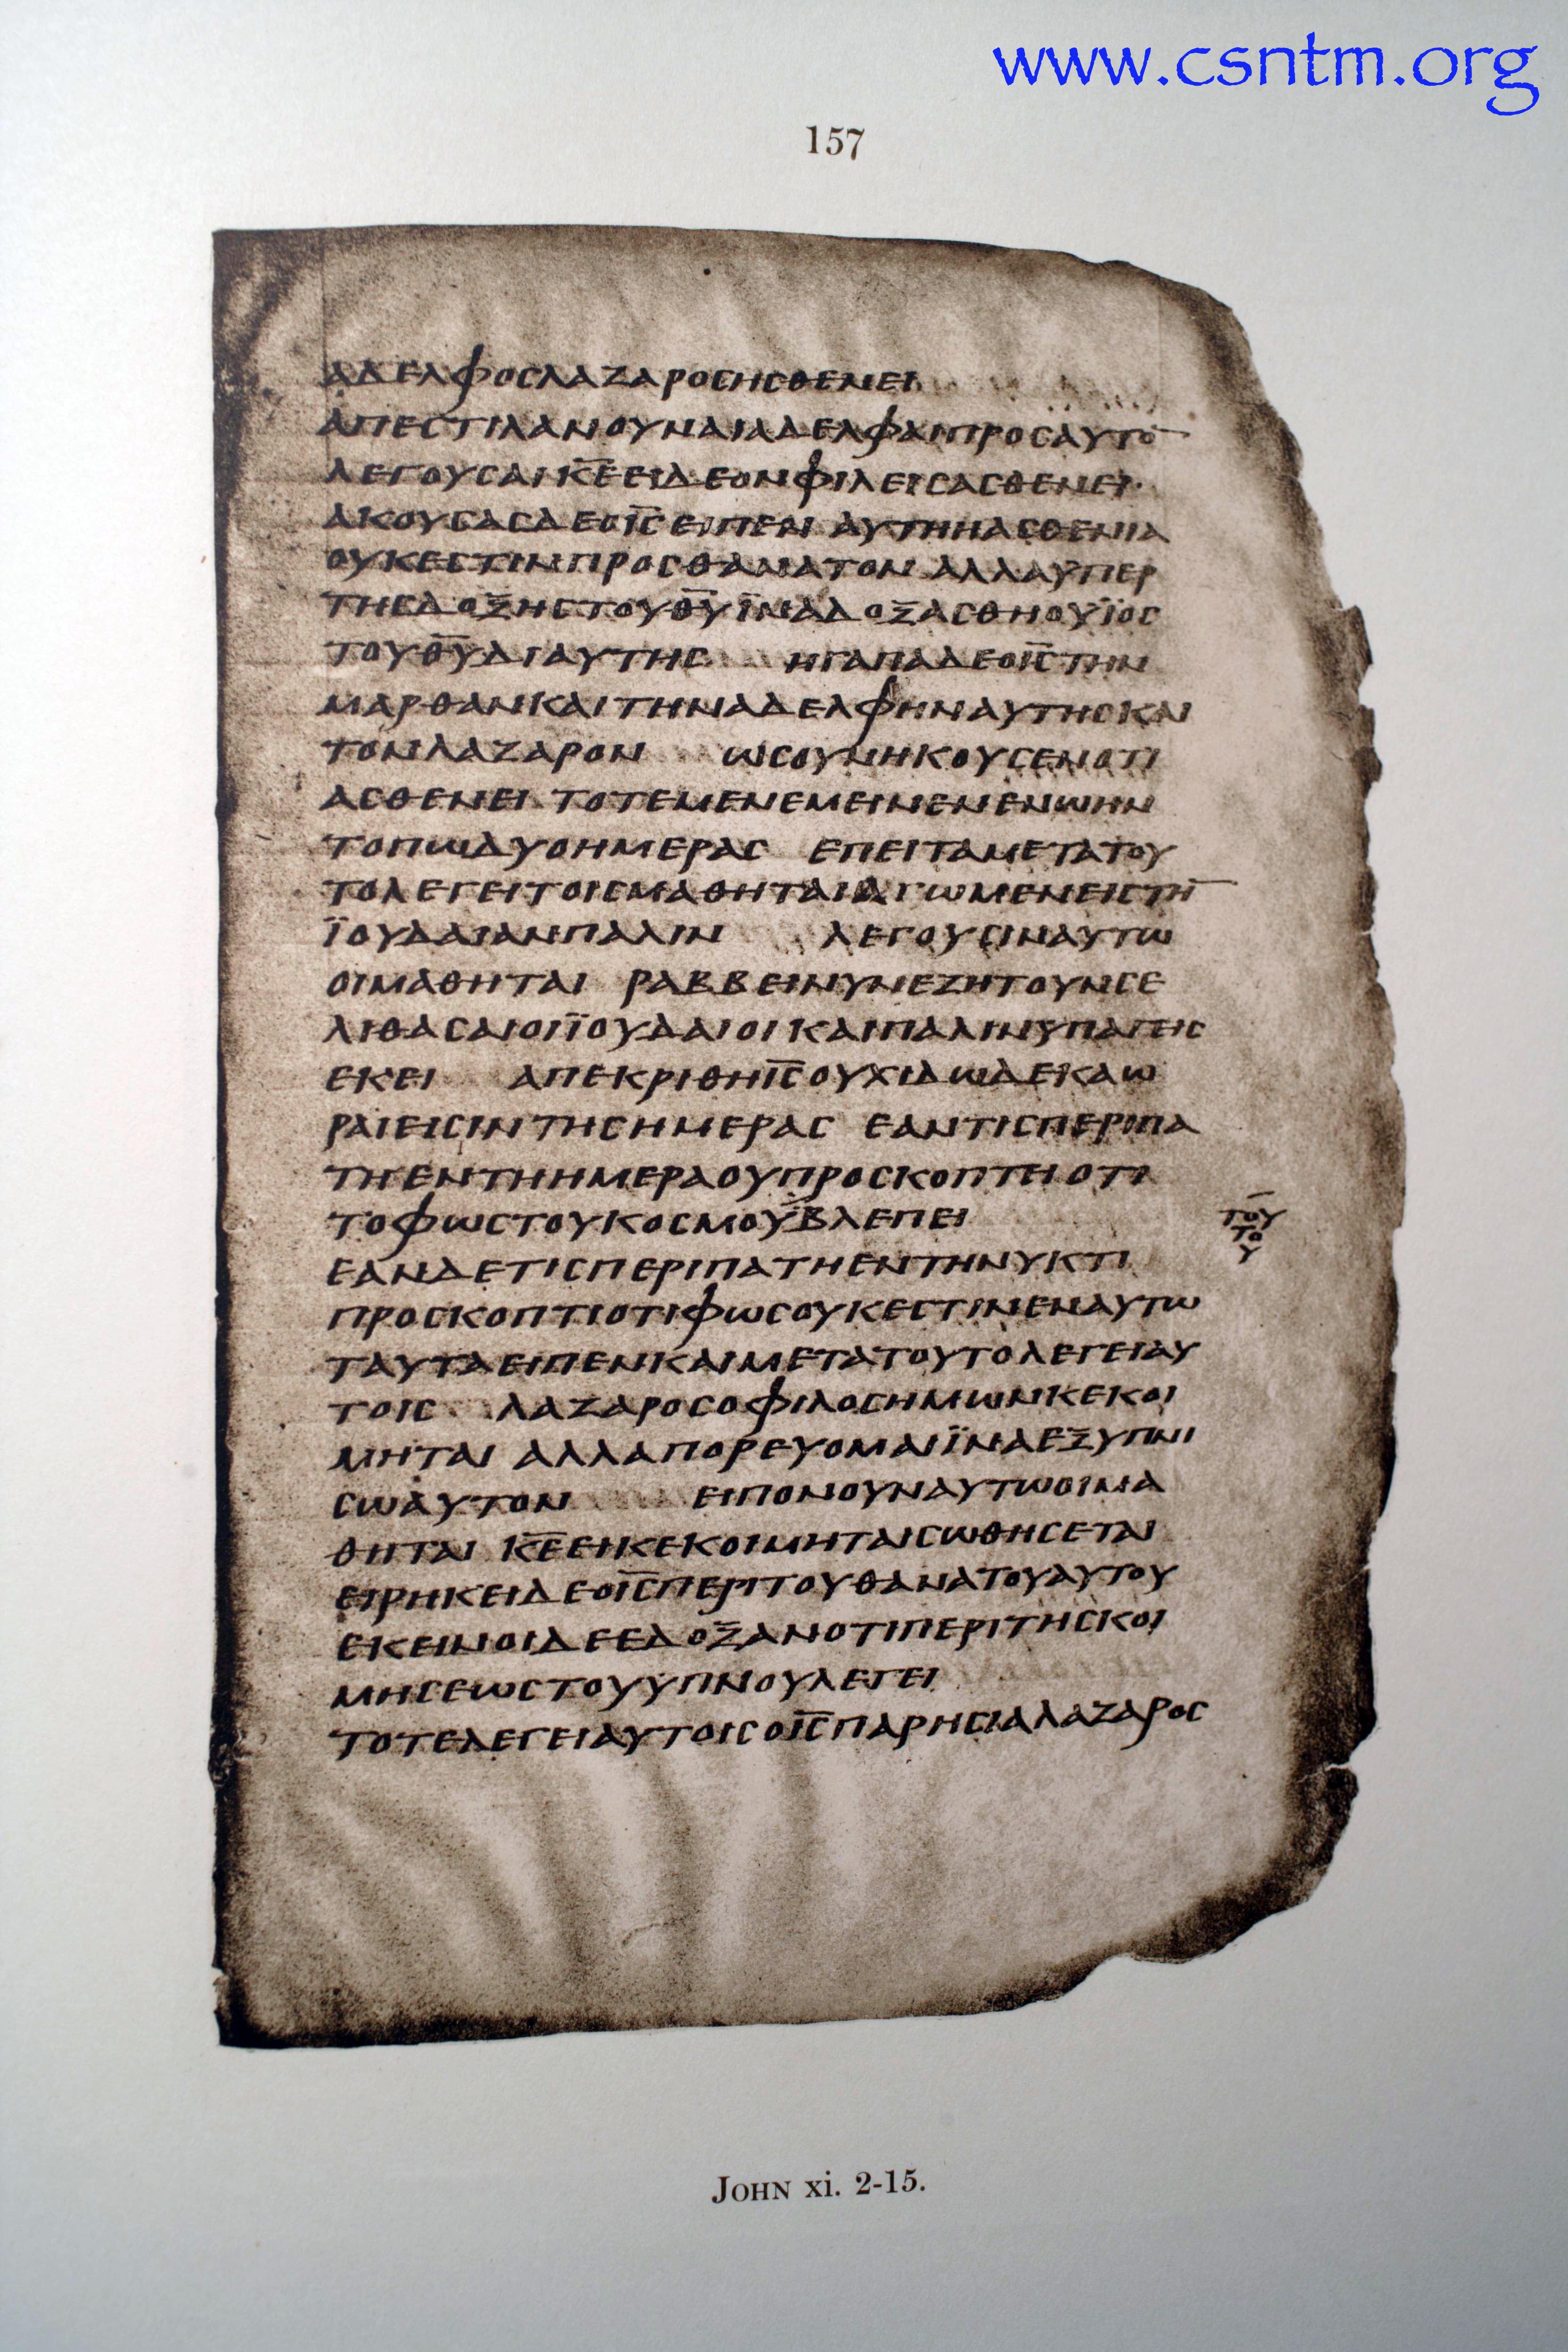 www.csntm.org
157
ΑΔΕΛΦΟCΛΑΖΑΡΟCΗCΘΕΝΕΙ
ΑΠΕCΤΙΛΑΝΟΥΝΑΙΑΔΕΛΦΑΙΠΡΟCΑΥΤΟ̅
ΛΕΓΟΥCΑΙΚ̅Ε̅ΕΙΔΕΟΝΦΙΛΕΙCΑCΘΕΝΕΙ·
ΑΚΟΥCΑCΔΕΟΙ̅C̅ΕΙΠΕΝ ΑΥΤΗΗΑCΘΕΝΙΑ
ΟΥΚΕCΤΙΝΠΡΟCΘΑΝΑΤΟΝ ΑΛΛΑΥΠΕΡ
ΤΗCΔΟΞΗCΤΟΥΘ̅Υ̅ΪΝΑΔΟΞΑCΘΗΟΥΪΟC
ΤΟΥΘ̅Υ̅ΔΙΑΥΤΗC ΗΓΑΠΑΔΕΟΙ̅C̅ΤΗΝ
ΜΑΡΘΑΝΚΑΙΤΗΝΑΔΕΛΦΗΝΑΥΤΗCΚΑΙ
ΤΟΝΛΑΖΑΡΟΝ ΩCΟΥΝΗΚΟΥCΕΝΟΤΙ
ΑCΘΕΝΕΙ ΤΟΤΕΜΕΝΕΜΕΙΝΕΝΕΝΩΗΝ
ΤΟΠΩΔΥΟΗΜΕΡΑC ΕΠΕΙΤΑΜΕΤΑΤΟΥ
ΤΟΛΕΓΕΙΤΟΙCΜΑΘΗΤΑΙΑΓΩΜΕΝΕΙCΤΗ̅
ΪΟΥΔΑΙΑΝΠΑΛΙΝ ΛΕΓΟΥCΙΝΑΥΤΩ
ΟΙΜΑΘΗΤΑΙ ΡΑΒΒΕΙΝΥΝΕΖΗΤΟΥΝCΕ
ΛΙΘΑCΑΙΟΙΪΟΥΔΑΙΟΙΚΑΙΠΑΛΙΝΥΠΑΓΕΙC
ΕΚΕΙ ΑΠΕΚΡΙΘΗΙ̅C̅ΟΥΧΙΔΩΔΕΚΑΩ
ΡΑΙΕΙCΙΝΤΗCΗΜΕΡΑC ΕΑΝΤΙCΠΕΡΙΠΑ
ΤΗΕΝΤΗΗΜΕΡΑΟΥΠΡΟCΚΟΠΤΕΙΟΤΙ
ΤΟΦΩCΤΟΥΚΟCΜΟΥΒΛΕΠΕΙ
ΤΟΥ
ΤΟ
Υ
ΕΑΝΔΕΤΙCΠΕΡΙΠΑΤΗΕΝΤΗΝΥΚΤΙ
ΠΡΟCΚΟΠΤΙΟΤΙΦΩCΟΥΚΕCΤΙΝΕΝΑΥΤΩ
ΤΑΥΤΑΕΙΠΕΝΚΑΙΜΕΤΑΤΟΥΤΟΛΕΓΕΙΑΥ
ΤΟΙC ΛΑΖΑΡΟCΟΦΙΛΟCΗΜΩΝΚΕΚΟΙ
ΜΗΤΑΙ ΑΛΛΑΠΟΡΕΥΟΜΑΙΪΝΑΕΞΥΠΝΙ
CΩΑΥΤΟΝ ΕΙΠΟΝΟΥΝΑΥΤΩΟΙΜΑ
ΘΗΤΑΙ Κ̅Ε̅ΕΙΚΕΚΟΙΜΗΤΑΙCΩΘΗCΕΤΑΙ
ΕΙΡΗΚΕΙΔΕΟΙ̅C̅ΠΕΡΙΤΟΥΘΑΝΑΤΟΥΑΥΤΟΥ
ΕΚΕΙΝΟΙΔΕΕΔΟΞΑΝΟΤΙΠΕΡΙΤΗCΚΟΙ
ΜΗCΕΩCΤΟΥΥΠΝΟΥΛΕΓΕΙ
ΤΟΤΕΛΕΓΕΙΑΥΤΟΙCΟΙ̅C̅ΠΑΡΗCΙΑΛΑΖΑΡΟC
JOHN xi. 2-15.